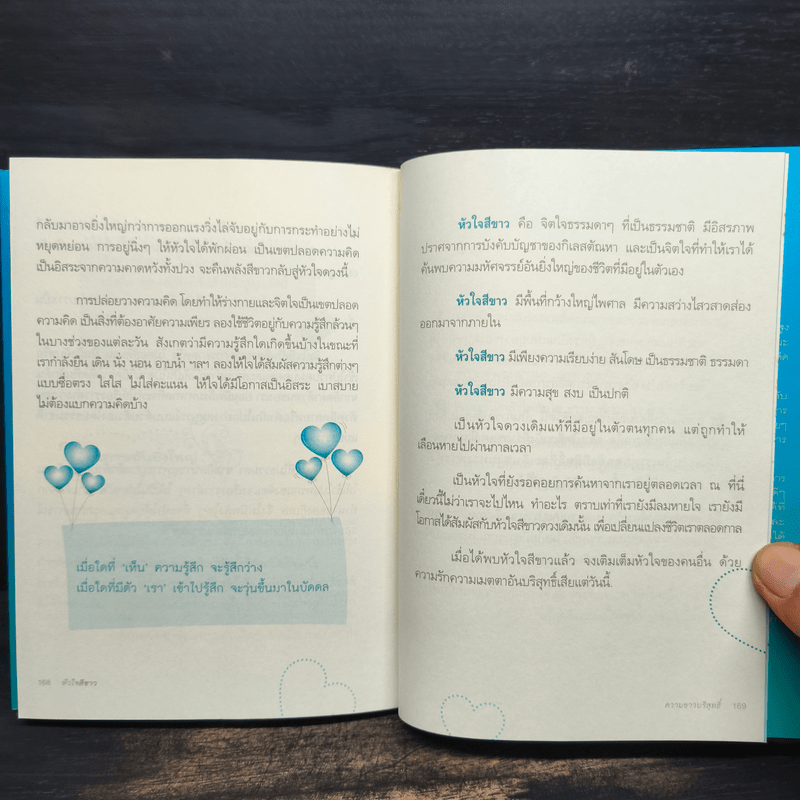 กลับมาอาจยิ่งใหญ่กว่าการออกแรงวิ่งไล่จับอยู่กับการกระทำอย่างไม่
หยุดหย่อน การอยู่นิ่งๆ ให้หัวใจได้พักผ่อน เป็นเขตปลอดความคิด
เป็นอิสระจากความคาดหวังทั้งปวง จะคืนพลังสีขาวกลับสู่หัวใจดวงนี้
การปล่อยวางความคิด โดยทำให้ร่างกายและจิตใจเป็นเขตปลอด
ความคิด เป็นสิ่งที่ต้องอาศัยความเพียร ลองใช้ชีวิตอยู่กับความรู้สึกล้วนๆ
ในบางช่วงของแต่ละวัน สังเกตว่ามีความรู้สึกใดเกิดขึ้นบ้างในขณะที่
เรากำลังยืน เดิน นั่ง นอน อาบน้ำ ฯลฯ ลองให้ใจได้สัมผัสความรู้สึกต่างๆ
แบบซื่อตรง ใสใส ไม่ใส่คะแนน ให้ใจได้มีโอกาสเป็นอิสระ เบาสบาย
ไม่ต้องแบกความคิดบ้าง
เมื่อใดที่ 'เห็น' ความรู้สึก จะรู้สึกว่าง
เมื่อใดที่มีตัว 'เรา' เข้าไปรู้สึก จะวุ่นขึ้นมาในบัดดล
168 หัวใจสีขาว
หัวใจสีขาว คือ จิตใจธรรมดาๆ ที่เป็นธรรมชาติ มีอิสรภาพ
ปราศจากการบังคับบัญชาของกิเลสตัณหา และเป็นจิตใจที่ทำให้เราได้
ค้นพบความมหัศจรรย์อันยิ่งใหญ่ของชีวิตที่มีอยู่ในตัวเอง
หัวใจสีขาว มีพื้นที่กว้างใหญ่ไพศาล มีความสว่างไสวสาดส่อง
ออกมาจากภายใน
หัวใจสีขาว มีเพียงความเรียบง่าย สันโดษ เป็นธรรมชาติ ธรรมดา
หัวใจสีขาว มีความสุข สงบ เป็นปกติ
เป็นหัวใจดวงเดิมแท้ที่มีอยู่ในตัวตนทุกคน แต่ถูกทำให้
เลือนหายไปผ่านกาลเวลา
เป็นหัวใจที่ยังรอคอยการค้นหาจากเราอยู่ตลอดเวลา ณ ที่นี่
เดี๋ยวนี้ไม่ว่าเราจะไปไหน ทำอะไร ตราบเท่าที่เรายังมีลมหายใจ เรายังมี
โอกาสได้สัมผัสกับหัวใจสีขาวดวงเดิมนั้น เพื่อเปลี่ยนแปลงชีวิตเราตลอดกาล
เมื่อได้พบหัวใจสีขาวแล้ว จงเติมเต็มหัวใจของคนอื่น ด้วย
ความรักความเมตตาอันบริสุทธิ์เสียแต่วันนี้.
ความขาวบริสุทธิ์ 169